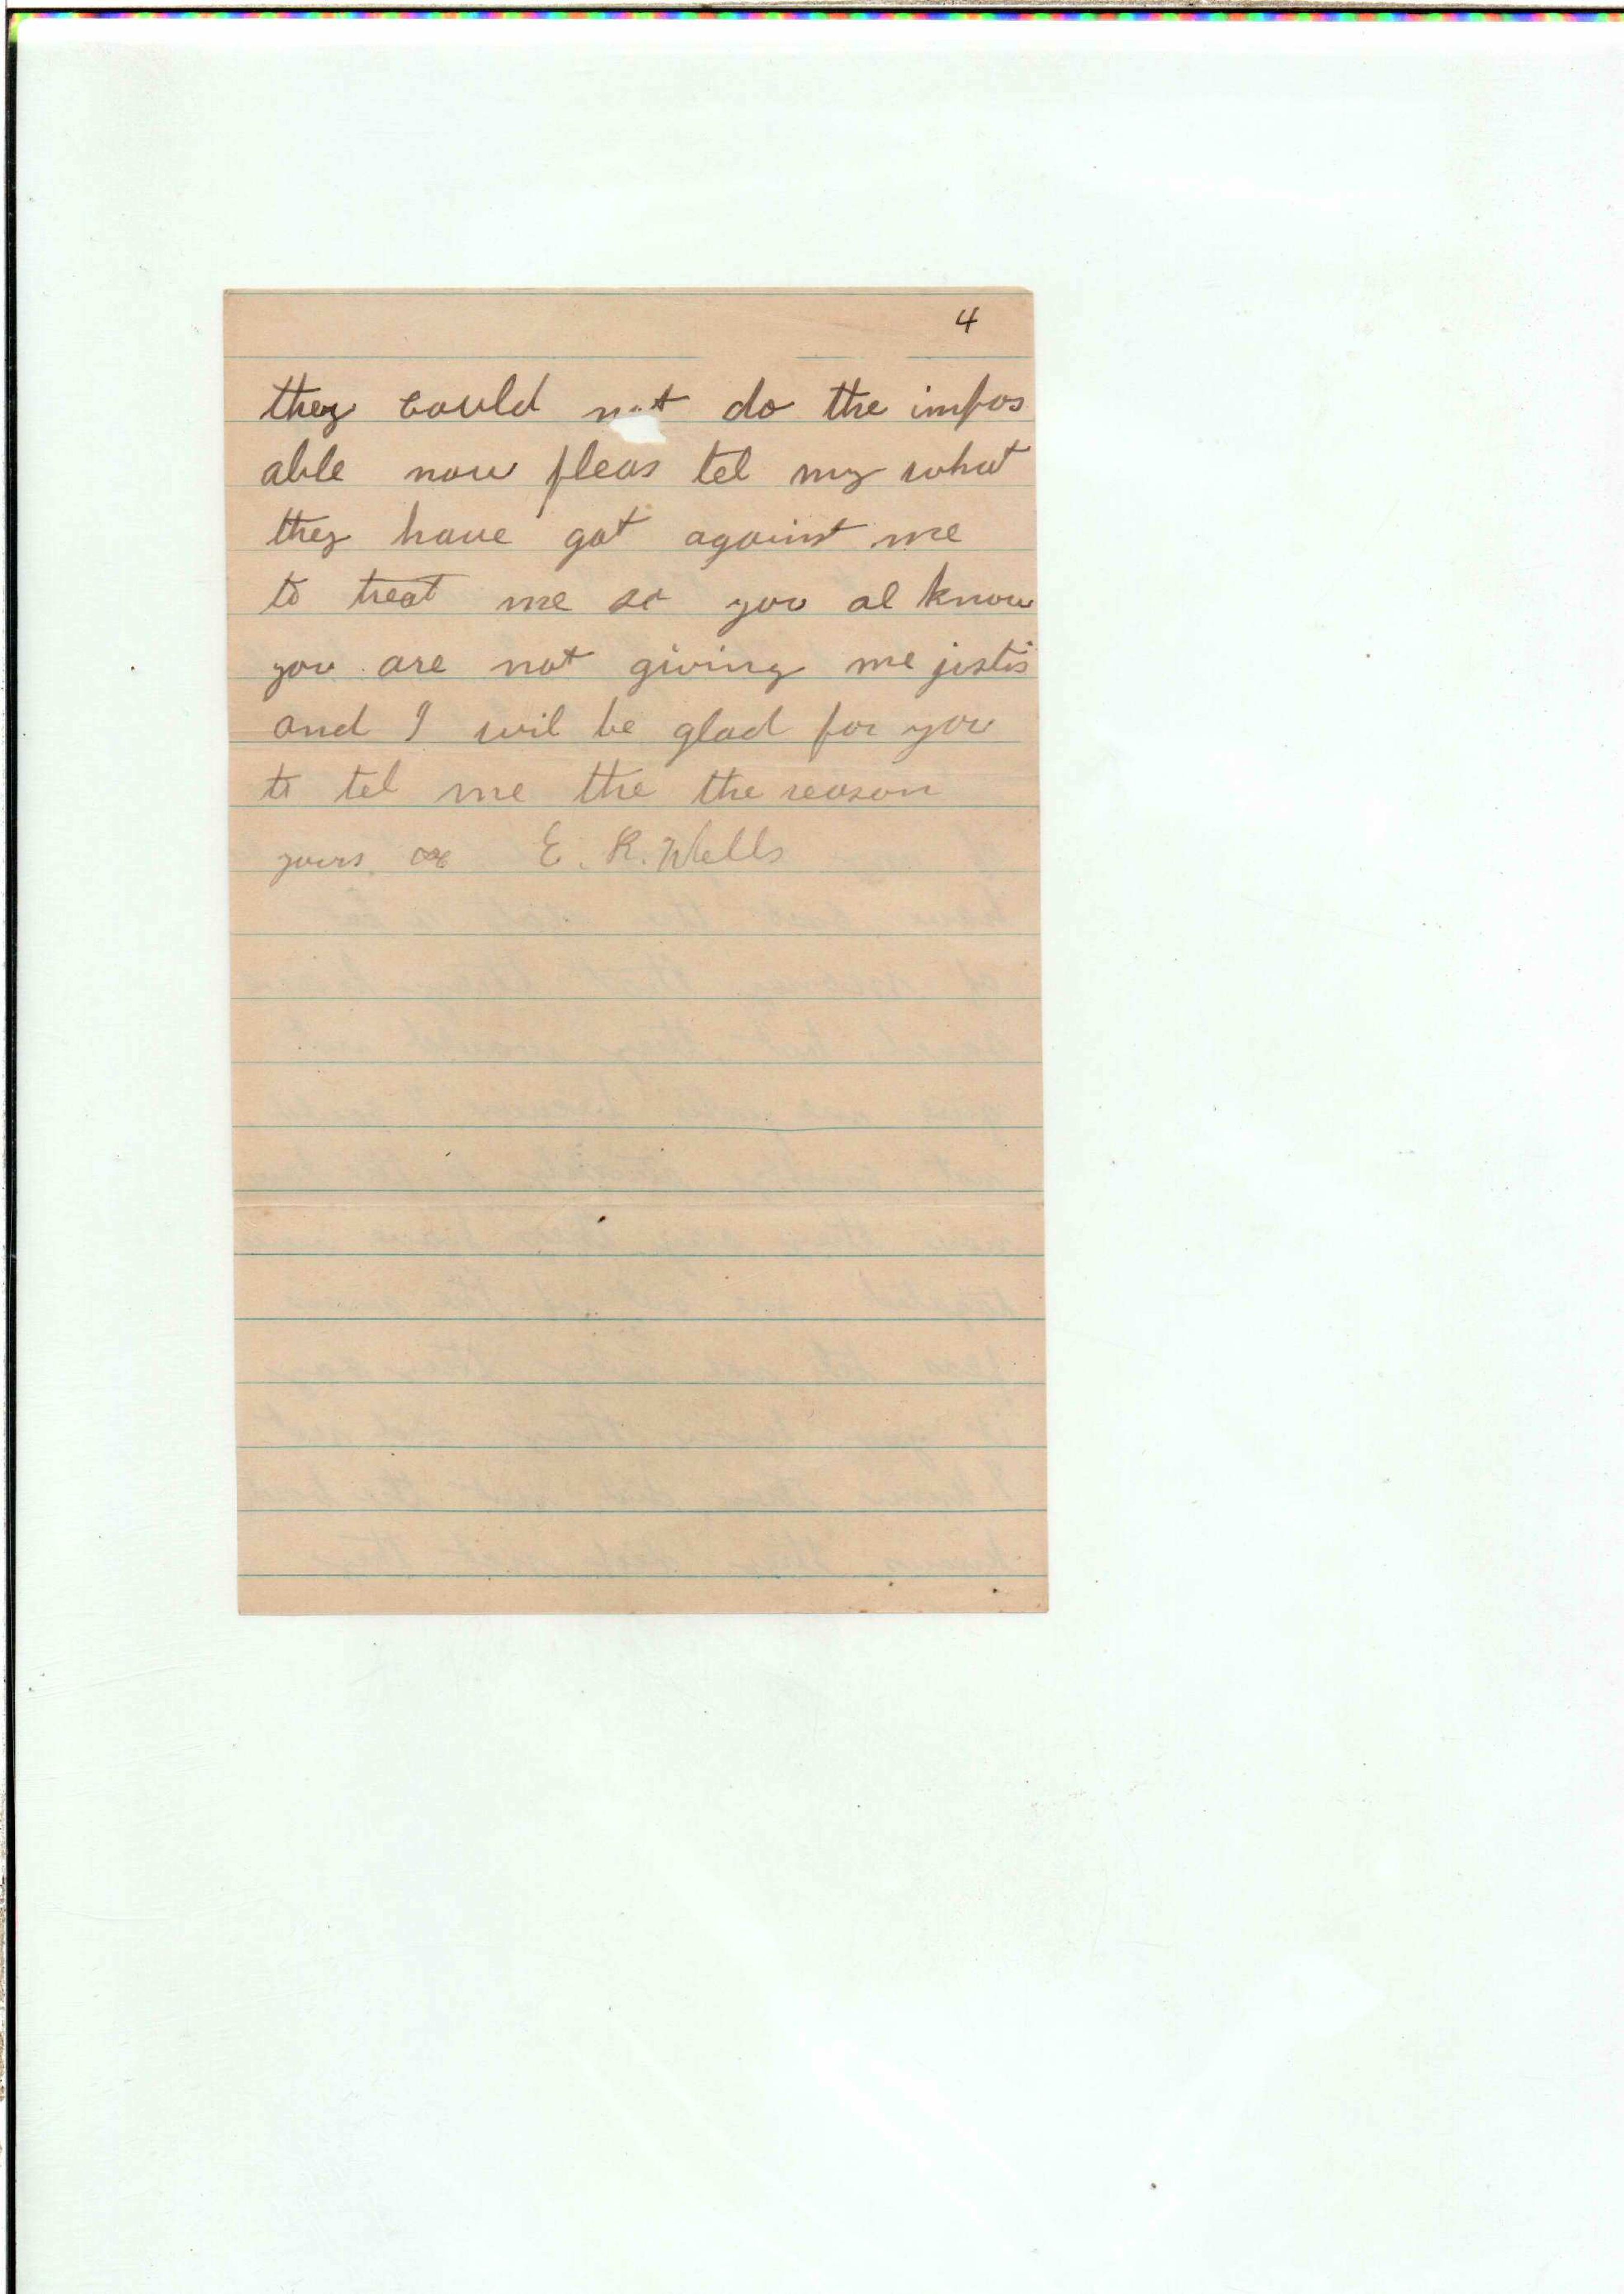 4
they could not do the impos
able now pleas tel my what
they have got against me
to treat me so you al know
you are not giving me justis
and I wil be glad for you
to tel me the the reason
yours E. R. Wells